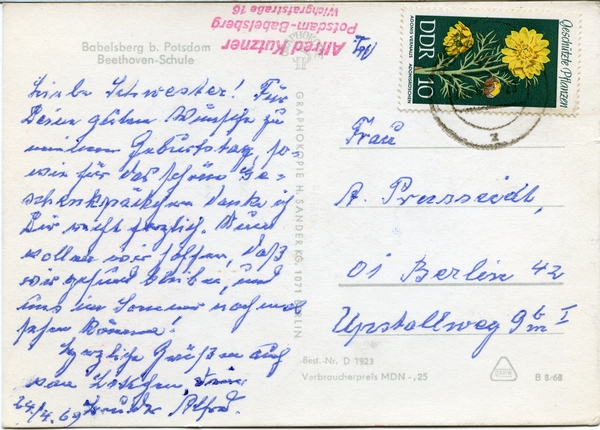 Babelsberg b. Potsdam
Beethoven-Schule
Alfred Kutzner
Potsdam-Babelsberg
Wichgrafstraße 16
Liebe Schwester! Für
Deine guten Wünsche zu
meinem Geburtstag, so-
wie für das schöne Ge-
schenkpäckchen danke ich
Dir recht herzlich. Nun
wollen wir hoffen, daß
wir gesund bleiben, und
uns im Sommer noch mal
sehen können!
Herzliche Grüße auch
von
Bruder Alfred.
24/4. 69
GRAPHOKOPIE H. SANDER KG, 1071 BERLIN
Geschützte Pflanzen
DDR
10
ADONIS VERNALIS ADONISRÖSCHEN
Frau
A.
01 Berlin 42
Upstallweg 9b I
Best.-Nr. D 1923
Verbraucherpreis MDN -,25
B 8/68